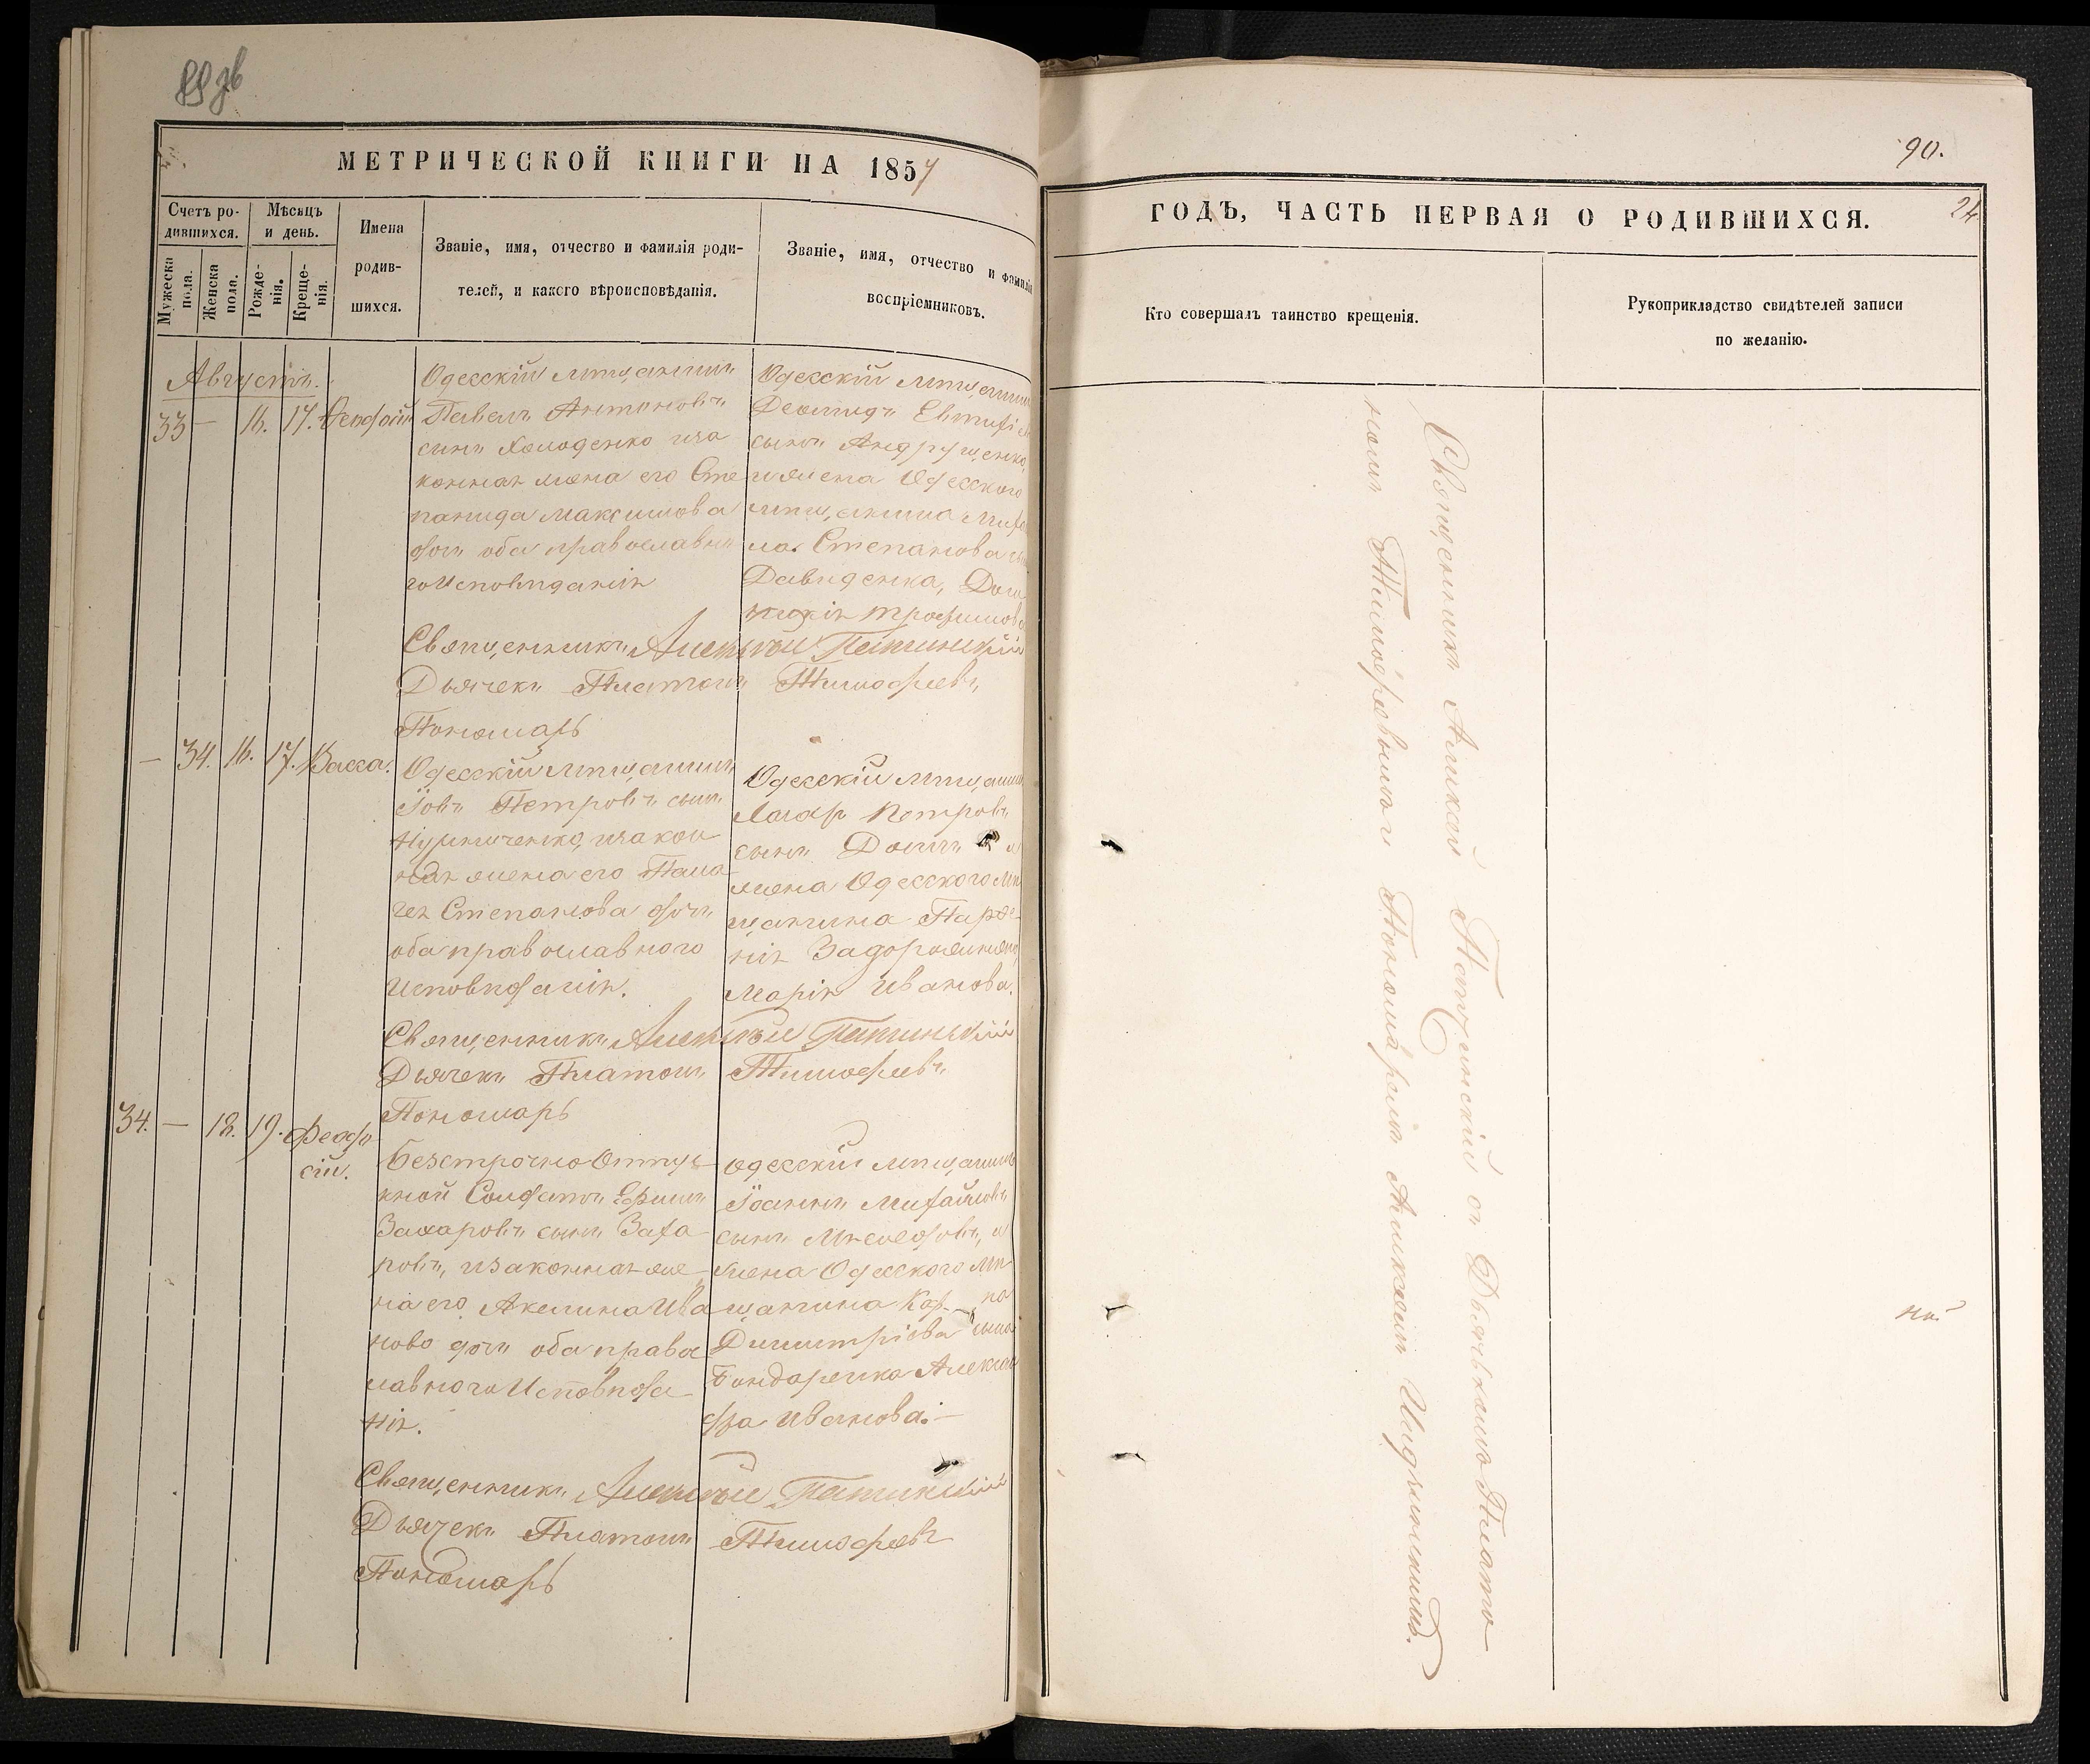 89 зв
МЕТРИЧЕСКОЙ КНИГИ НА 1857
Счетъ ро-
дившихся.
Мѣсяцъ
и день.
Имена
родив-
шихся.
Званіе, имя, отчество и фамилія роди-
телей, и какого вѣроисповѣданія.
Званіе, имя, отчество и фамилія
воспріемниковъ.
Мужеска
пола.
Женска
пола.
Рожде-
нія.
Креще-
нія.
Августъ.
33 — 16. 17.
Одесскій мѣщанинъ
Павелъ Антоновъ
сынъ Холоденко иза
конная жена его Сте
панида Максимова
дочь оба православна
го Исповѣданія
Одесскій мѣщанин
Леонидъ Евтифіе
сынъ Андрущенко,
и жена Одесского
мѣщанина Миха
ла Степанова
Давиденка,
Трофимова
Священникъ Алексѣй
Дьячекъ Платонъ Тимофеевъ,
Пономарь
— 34. 16. 17. Васса.
Одесскій мѣщанинъ
Іовъ Петровъ сынъ
изакон
ная жена его Пела
гея Степанова дочь
оба православного
Исповѣданія.
Одесскій мѣщанин
Лазарь Петровъ
сынъ и
жена Одесского мѣ
щанина Парфе
нія Задорожнаго,
Марія Иванова.
Священникъ Алексѣй
Дьячекъ Платонъ Тимофеевъ
Пономарь
34. — 18. 19. Феодо
сій.
Безсрочно Отпус
кной Солдатъ Ефимъ
Захаровъ сынъ Заха
ровъ, изаконная же
на его Акелина Ива
нова дочь оба правос
лавного Исповѣда
нія.
Одесскій мѣщанинъ
Іоаннъ Михайловъ
сынъ и
жена Одесского мѣ
щанина
Димитріева сына
Бондаренка Алексан
дра Иванова.—
Священникъ Алексѣй
Дьячекъ Платонъ Тимофеевъ
Пономарь
90.
24
ГОДЪ, ЧАСТЬ ПЕРВАЯ О РОДИВШИХСЯ.
Кто совершалъ таинство крещенія.
Рукоприкладство свидѣтелей записи
по желанію.
Священникъ Алексѣй съ Дьячкомъ Плато
номъ Тимофеевымъ Пономаремъ